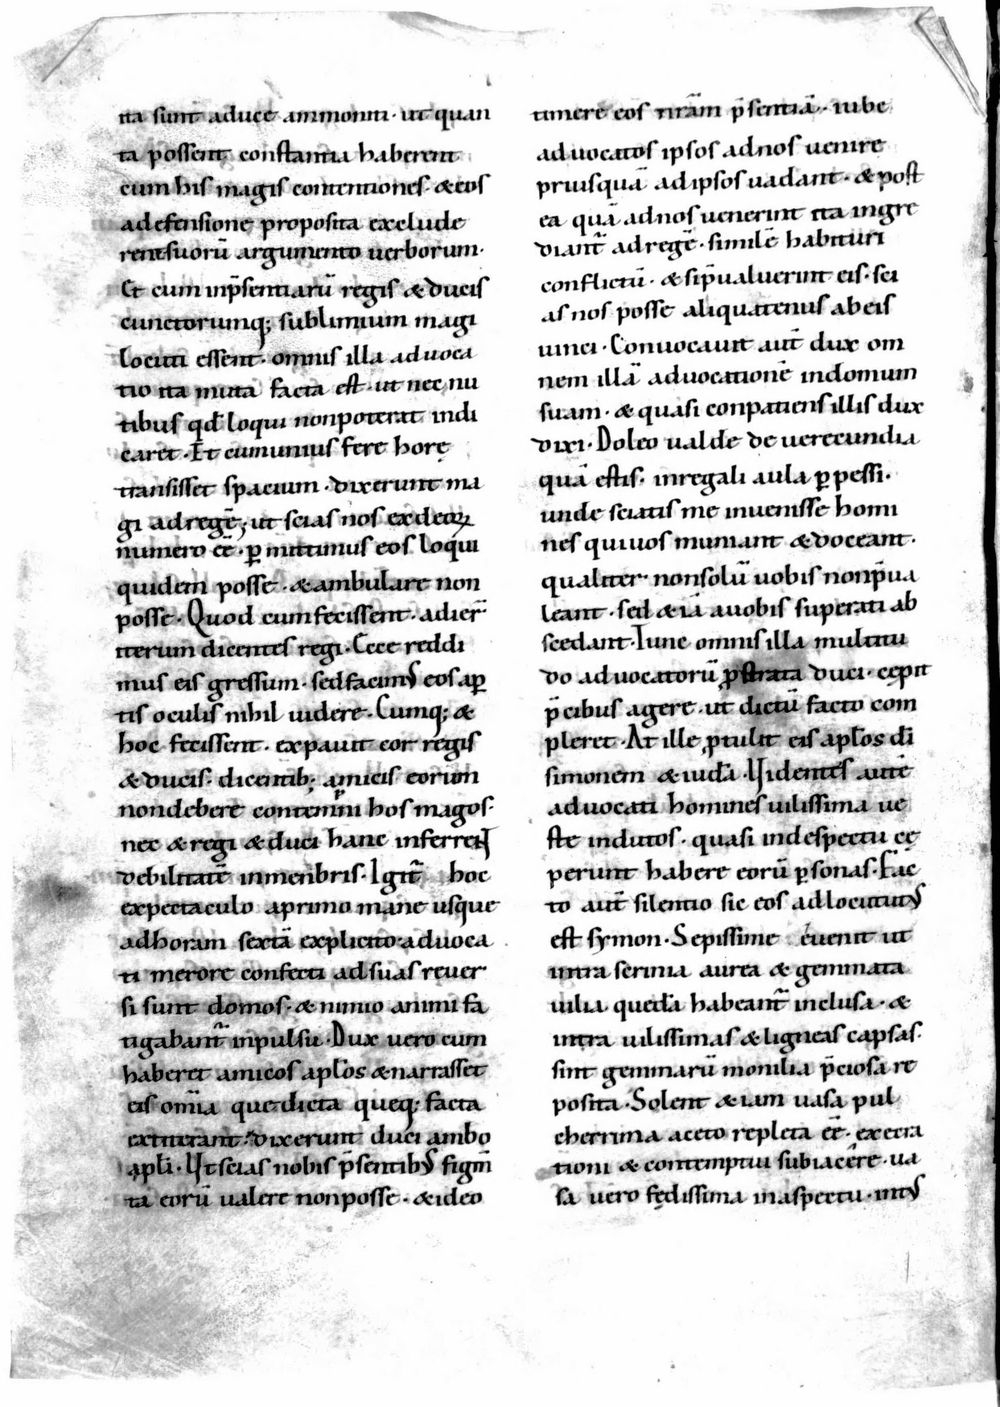 ita sunt aduce ammoniti· ut quan
ta possent constantia haberent
cum his magis contentiones· &eos
adefensione proposita exclude
rent suorū argumento uerborum·
Et cum inp̄sentiarū regis &ducis
cunctorumq; sublimium magi
locuti essent· omnis illa aduoca
tio ita muta facta est· ut nec nu
tibus qđ loqui nonpoterat indi
caret· Et cum unius fere horę
transisset spacium· dixerunt ma
gi adregē, ut scias nos ex deoꝝ
numero eē· ꝑmittimus eos loqui
quidem posse· &ambulare non
posse· Quod cum fecissent· adier̄
iterum dicentes regi· Ecce reddi
mus eis gressum· sed facimꝰ eos aꝑ
tis oculis nihil uidere· Cumq; &
hoc fecissent· expauit cor regis
&ducis· dicentib; amicis eorum
nondebere contemni hos magos·
nec &regi &duci hanc inferrent
debilitatē inmenbris· Igit̄ hoc
expectaculo aprimo mane usque
adhoram sextā explicito· aduoca
ti merore confecti adsuas reuer
si sunt domos· &nimio animi fa
tigabant̄ inpulsu· Dux uero cum
haberet amicos apłos &narrasset
eis om̄ia que dicta queq; facta
extiterant· dixerunt duci ambo
apłi· Ut scias nobis p̄sentibꝰ figm̄
ta eorū ualere nonposse· &ideo
timere eos n̄rām p̄sentiā· iube
aduocatos ipsos adnos uenire
priusquā adipsos uadant· &post
ea quā adnos uenerint ita ingre
diant̄ adregē· similē habituri
conflictū· &sip̄ualuerint eis· sci
as nos posse aliquatenus abeis
uinci· Conuocauit aut̄ dux om
nem illā aduocationē indomum
suam· &quasi conpatiens illis dux
dixi· Doleo ualde de uerecundia
quā estis· inregali aula ꝑpessi·
unde sciatis me inuenisse homi
nes qui uos muniant &doceant·
qualiter· nonsolū uobis nonp̄ua
leant· sed &iā auobis superati ab
scedant· Tunc omnis illa multitu
do aduocatorū ꝓstrata duci· cepit
p̄cibus agere· ut dictū facto com
pleret· At ille ꝓtulit eis apłos dī
simonem &iudā· Uidentes aute
aduocati homines uilissima ue
ste indutos· quasi indespectu ce
perunt habere eorū ꝑsonas· Fac
to aut̄ silentio sic eos adlocututꝰ
est symon· Sepissime euenit ut
intra scrinia aurea & gemmata
uilia quedā habeant̄ inclusa· &
intra uilissimas &ligneas capsas·
sint gemmarū monilia p̄ciosa re
posita· Solent &iam uasa pul
cherrima aceto repleta eē· execra
tioni &contemptui subiacēre· ua
sa uero fędissima inaspectu· intꝰ